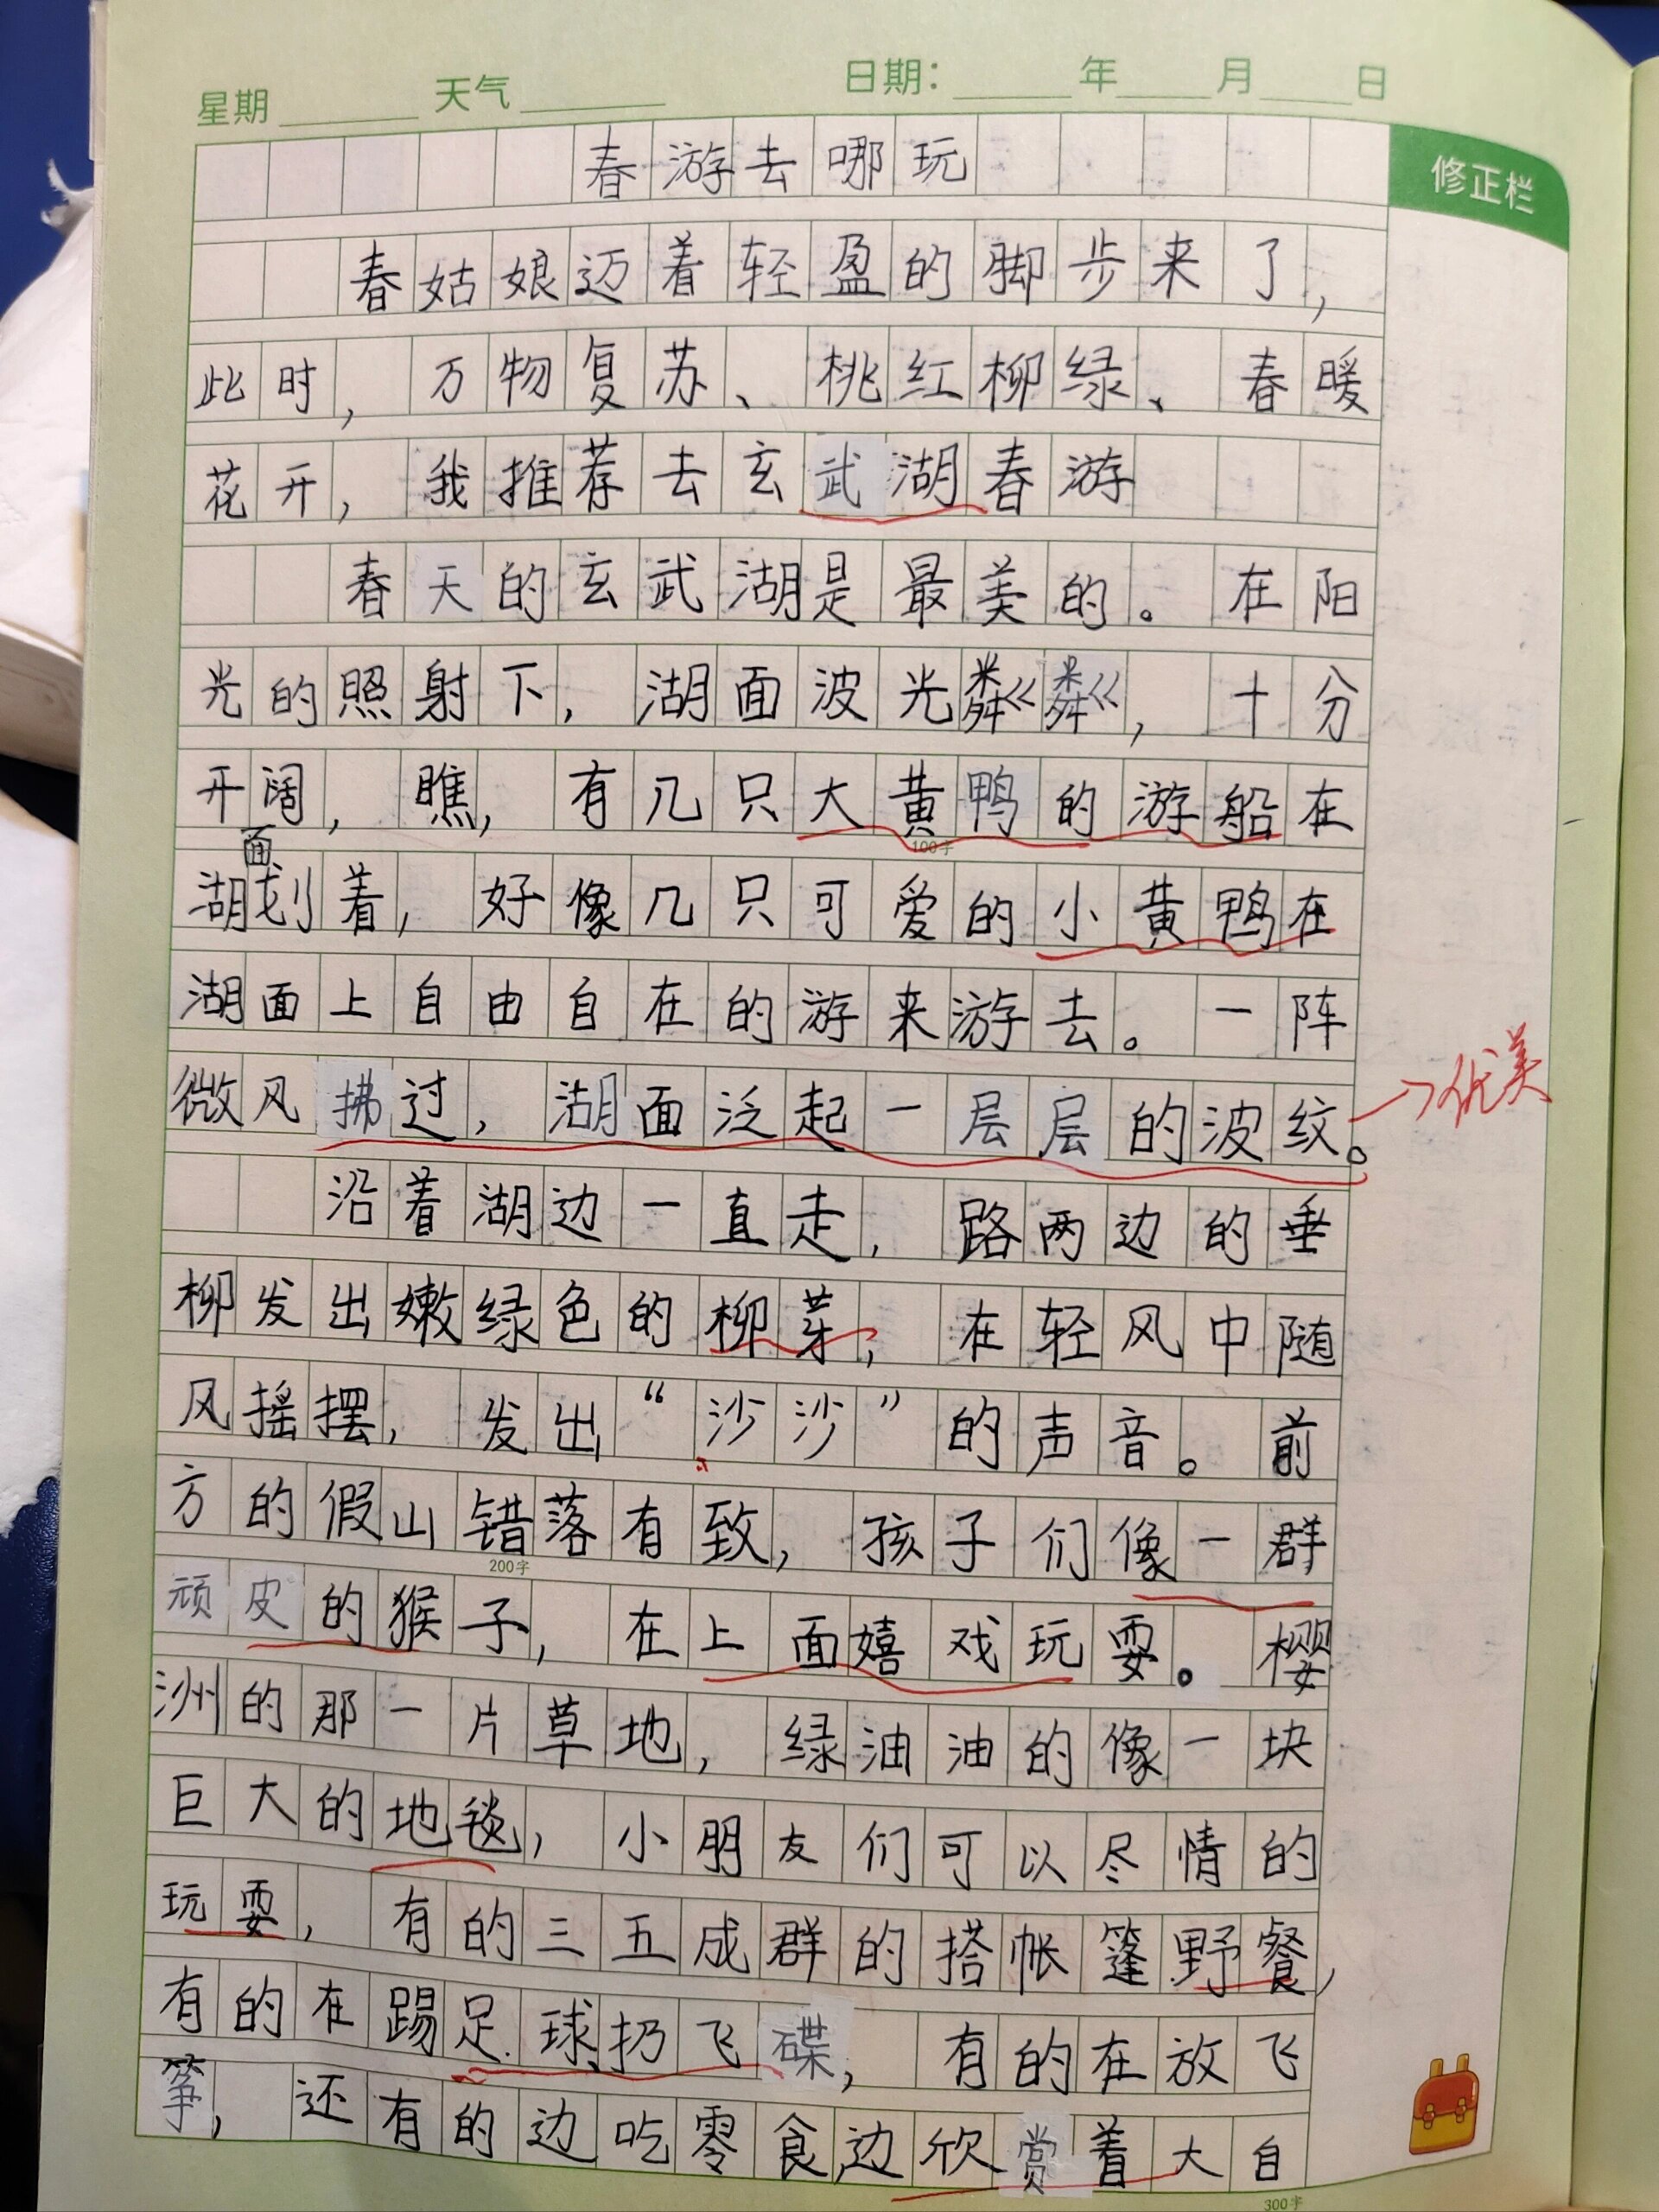 星期 天气 日期： 年 月 日
修正栏
春游去哪玩
春姑娘迈着轻盈的脚步来了，
此时，万物复苏、桃红柳绿、春暖
花开，我推荐去玄武湖春游
春天的玄武湖是最美的。在阳
光的照射下，湖面波光粼粼，十分
开阔，瞧，有几只大黄鸭的游船在
100字
湖面划着，好像几只可爱的小黄鸭在
湖面上自由自在的游来游去。一阵
微风拂过，湖面泛起一层层的波纹。
→优美
沿着湖边一直走，路两边的垂
柳发出嫩绿色的柳芽，在轻风中随
风摇摆，发出“沙沙”的声音。前
方的假山错落有致，孩子们像一群
200字
顽皮的猴子，在上面嬉戏玩耍。樱
洲的那一片草地，绿油油的像一块
巨大的地毯，小朋友们可以尽情的
玩耍，有的三五成群的搭帐篷野餐，
有的在踢足球、扔飞碟，有的在放飞
筝，还有的边吃零食边欣赏着大自
300字